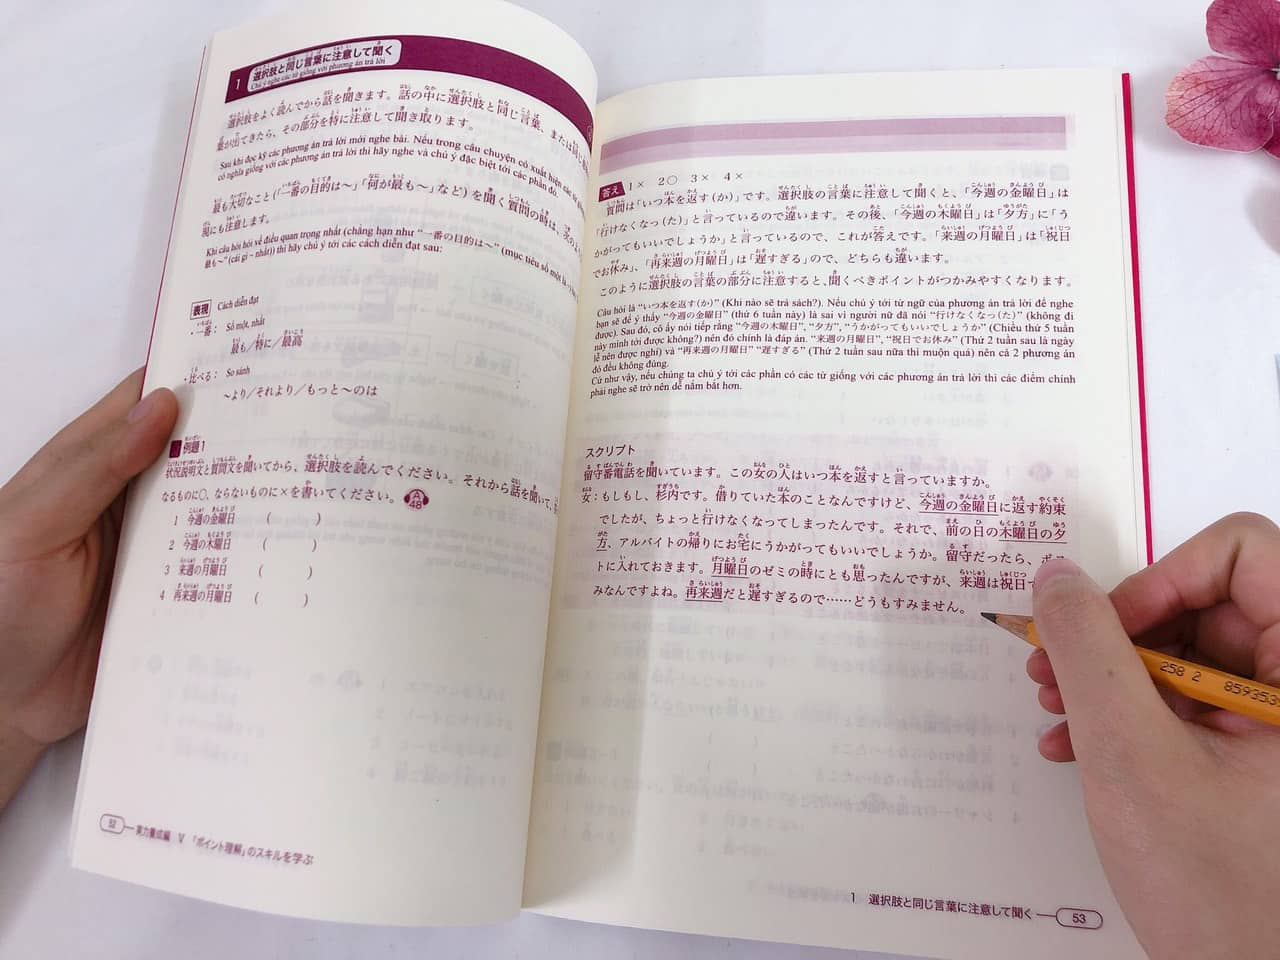 1 選択肢と同じ言葉に注意して聞く
Chú ý nghe các từ giống với phương án trả lời
選択肢をよく読んでから話を聞きます。話の中に選択肢と同じ言葉、または同じ
葉が出てきたら、その部分を特に注意して聞き取ります。
Sau khi đọc kỹ các phương án trả lời mới nghe bài. Nếu trong câu chuyện có xuất hiện các
có nghĩa giống với các phương án trả lời thì hãy nghe và chú ý đặc biệt tới các phần đó.
最も大切なこと(「一番の目的は~」「何が最も~」など)を聞く質問の時は、次の
現にも注意します。
Khi câu hỏi hỏi về điều quan trọng nhất (chẳng hạn như "一番の目的は~" (mục tiêu số một là
最も~" (cái gì ~ nhất)) thì hãy chú ý tới các cách diễn đạt sau:
表現 Cách diễn đạt
・一番: Số một, nhất
最も/特に/最高
・比べる: So sánh
~より/それより/もっと~のは
例題1
状況説明文と質問文を聞いてから、選択肢を読んでください。それから話を聞いて、
なるものに○、ならないものに×を書いてください。 A 48
1 今週の金曜日 ( )
2 今週の木曜日 ( )
3 来週の月曜日 ( )
4 再来週の月曜日 ( )
52 実力養成編 V 「ポイント理解」のスキルを学ぶ
答え 1× 2○ 3× 4×
質問は「いつ本を返す(か)」です。選択肢の言葉に注意して聞くと、「今週の金曜日」は
「行けなくなっ(た)」と言っているので違います。その後、「今週の木曜日」は「夕方」に「う
かがってもいいでしょうか」と言っているので、これが答えです。「来週の月曜日」は「祝日
でお休み」、「再来週の月曜日」は「遅すぎる」ので、どちらも違います。
このように選択肢の言葉の部分に注意すると、聞くべきポイントがつかみやすくなります。
Câu hỏi là "いつ本を返す(か)" (Khi nào sẽ trả sách?). Nếu chú ý tới từ ngữ của phương án trả lời để nghe
bạn sẽ để ý thấy "今週の金曜日" (thứ 6 tuần này) là sai vì người nữ đã nói "行けなくなっ(た)" (không đi
được). Sau đó, cô ấy nói tiếp rằng "今週の木曜日", "夕方", "うかがってもいいでしょうか" (Chiều thứ 5 tuần
này mình tới được không?) nên đó chính là đáp án. "来週の月曜日", "祝日でお休み" (Thứ 2 tuần sau là ngày
lễ nên được nghỉ) và "再来週の月曜日" "遅すぎる" (Thứ 2 tuần sau nữa thì muộn quá) nên cả 2 phương án
đó đều không đúng.
Cứ như vậy, nếu chúng ta chú ý tới các phần có các từ giống với các phương án trả lời thì các điểm chính
phải nghe sẽ trở nên dễ nắm bắt hơn.
スクリプト
留守番電話を聞いています。この女の人はいつ本を返すと言っていますか。
女:もしもし、杉内です。借りていた本のことなんですけど、今週の金曜日に返す約束
でしたが、ちょっと行けなくなってしまったんです。それで、前の日の木曜日の夕
方、アルバイトの帰りにお宅にうかがってもいいでしょうか。留守だったら、ポス
トに入れておきます。月曜日のゼミの時にとも思ったんですが、来週は祝日で
みなんですよね。再来週だと遅すぎるので……どうもすみません。
1 選択肢と同じ言葉に注意して聞く 53
258 2 859353